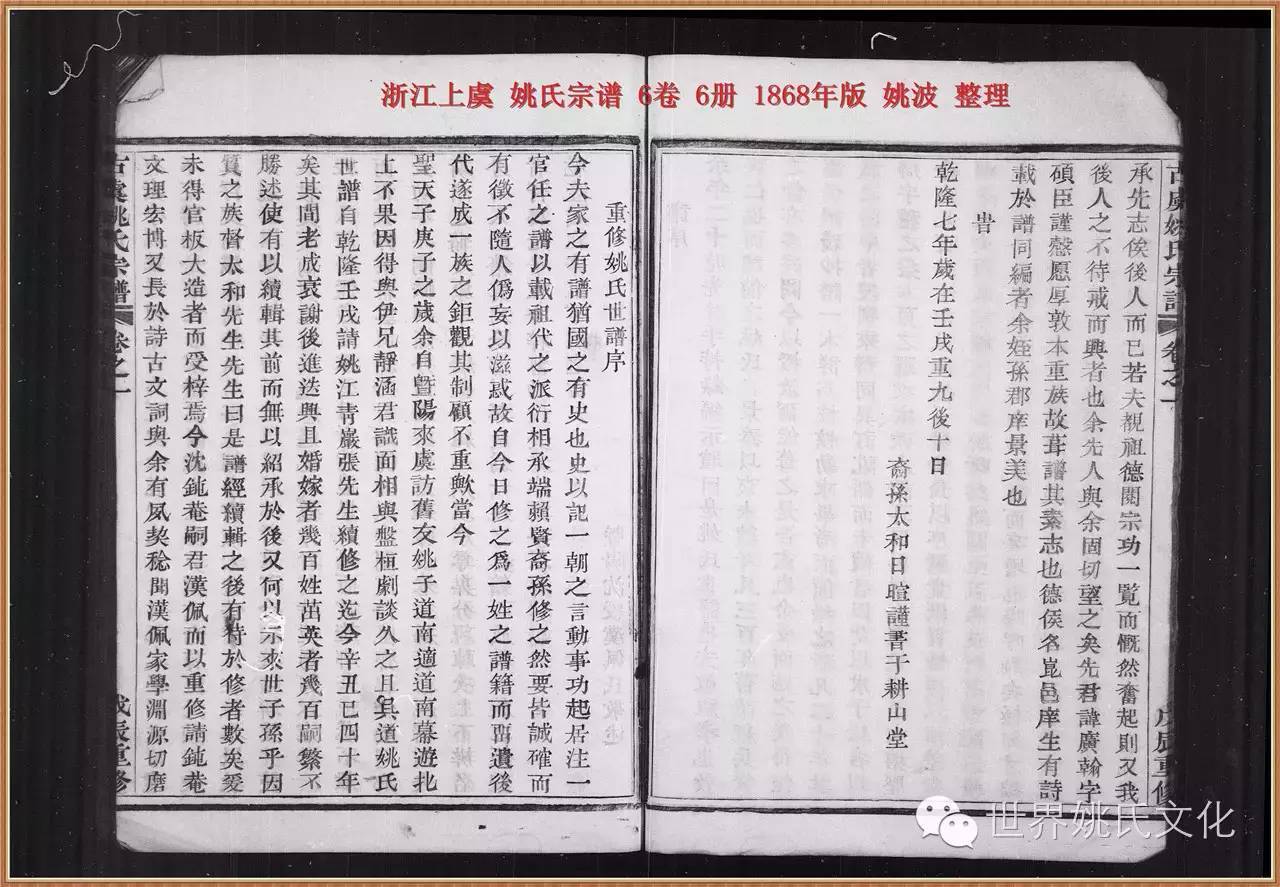 浙江上虞 姚氏宗谱 6卷 6册 1868年版 姚波 整理
古虞姚氏宗譜 卷之一 戊辰重修
承先志俟後人而已若夫覩祖德閱宗功一覽而慨然奮起則又我
後人之不待戒而興者也余先人與余固切望之矣先君諱廣翰字
碩臣謹愨愿厚敦本重族故葺譜其素志也德俟名崑邑庠生有詩
載於譜同編者余姪孫郡庠景美也
旹
乾隆七年歲在壬戌重九後十日
裔孫太和日暄謹書于耕山堂
重修姚氏世譜序
今夫家之有譜猶國之有史也史以記一朝之言動事功起居注一
官任之譜以載祖代之派衍相承端賴賢裔孫修之然要皆誠確而
有徵不隨人僞妄以滋惑故自今日修之爲一姓之譜籍而畱遺後
代遂成一族之鉅觀其制顧不重歟當今
聖天子庚子之歲余自暨陽來虞訪舊友姚子道南適道南幕遊北
上不果因得與伊兄靜涵君識面相與盤桓劇談久之且具道姚氏
世譜自乾隆壬戌請姚江青巖張先生續修之迄今辛丑已四十年
矣其間老成衰謝後進迭興且婚嫁者幾百姓茁英者幾百嗣繁不
勝述使有以續輯其前而無以紹承於後又何以示來世子孫乎因
質之族督太和先生先生曰是譜經續輯之後有待於修者數矣爰
未得官板大造者而受梓焉今沈鈍菴嗣君漢佩而以重修請鈍菴
文理宏博又長於詩古文詞與余有夙契稔聞漢佩家學淵源切磨
古虞姚氏宗譜 卷之一 戊辰重修
世界姚氏文化